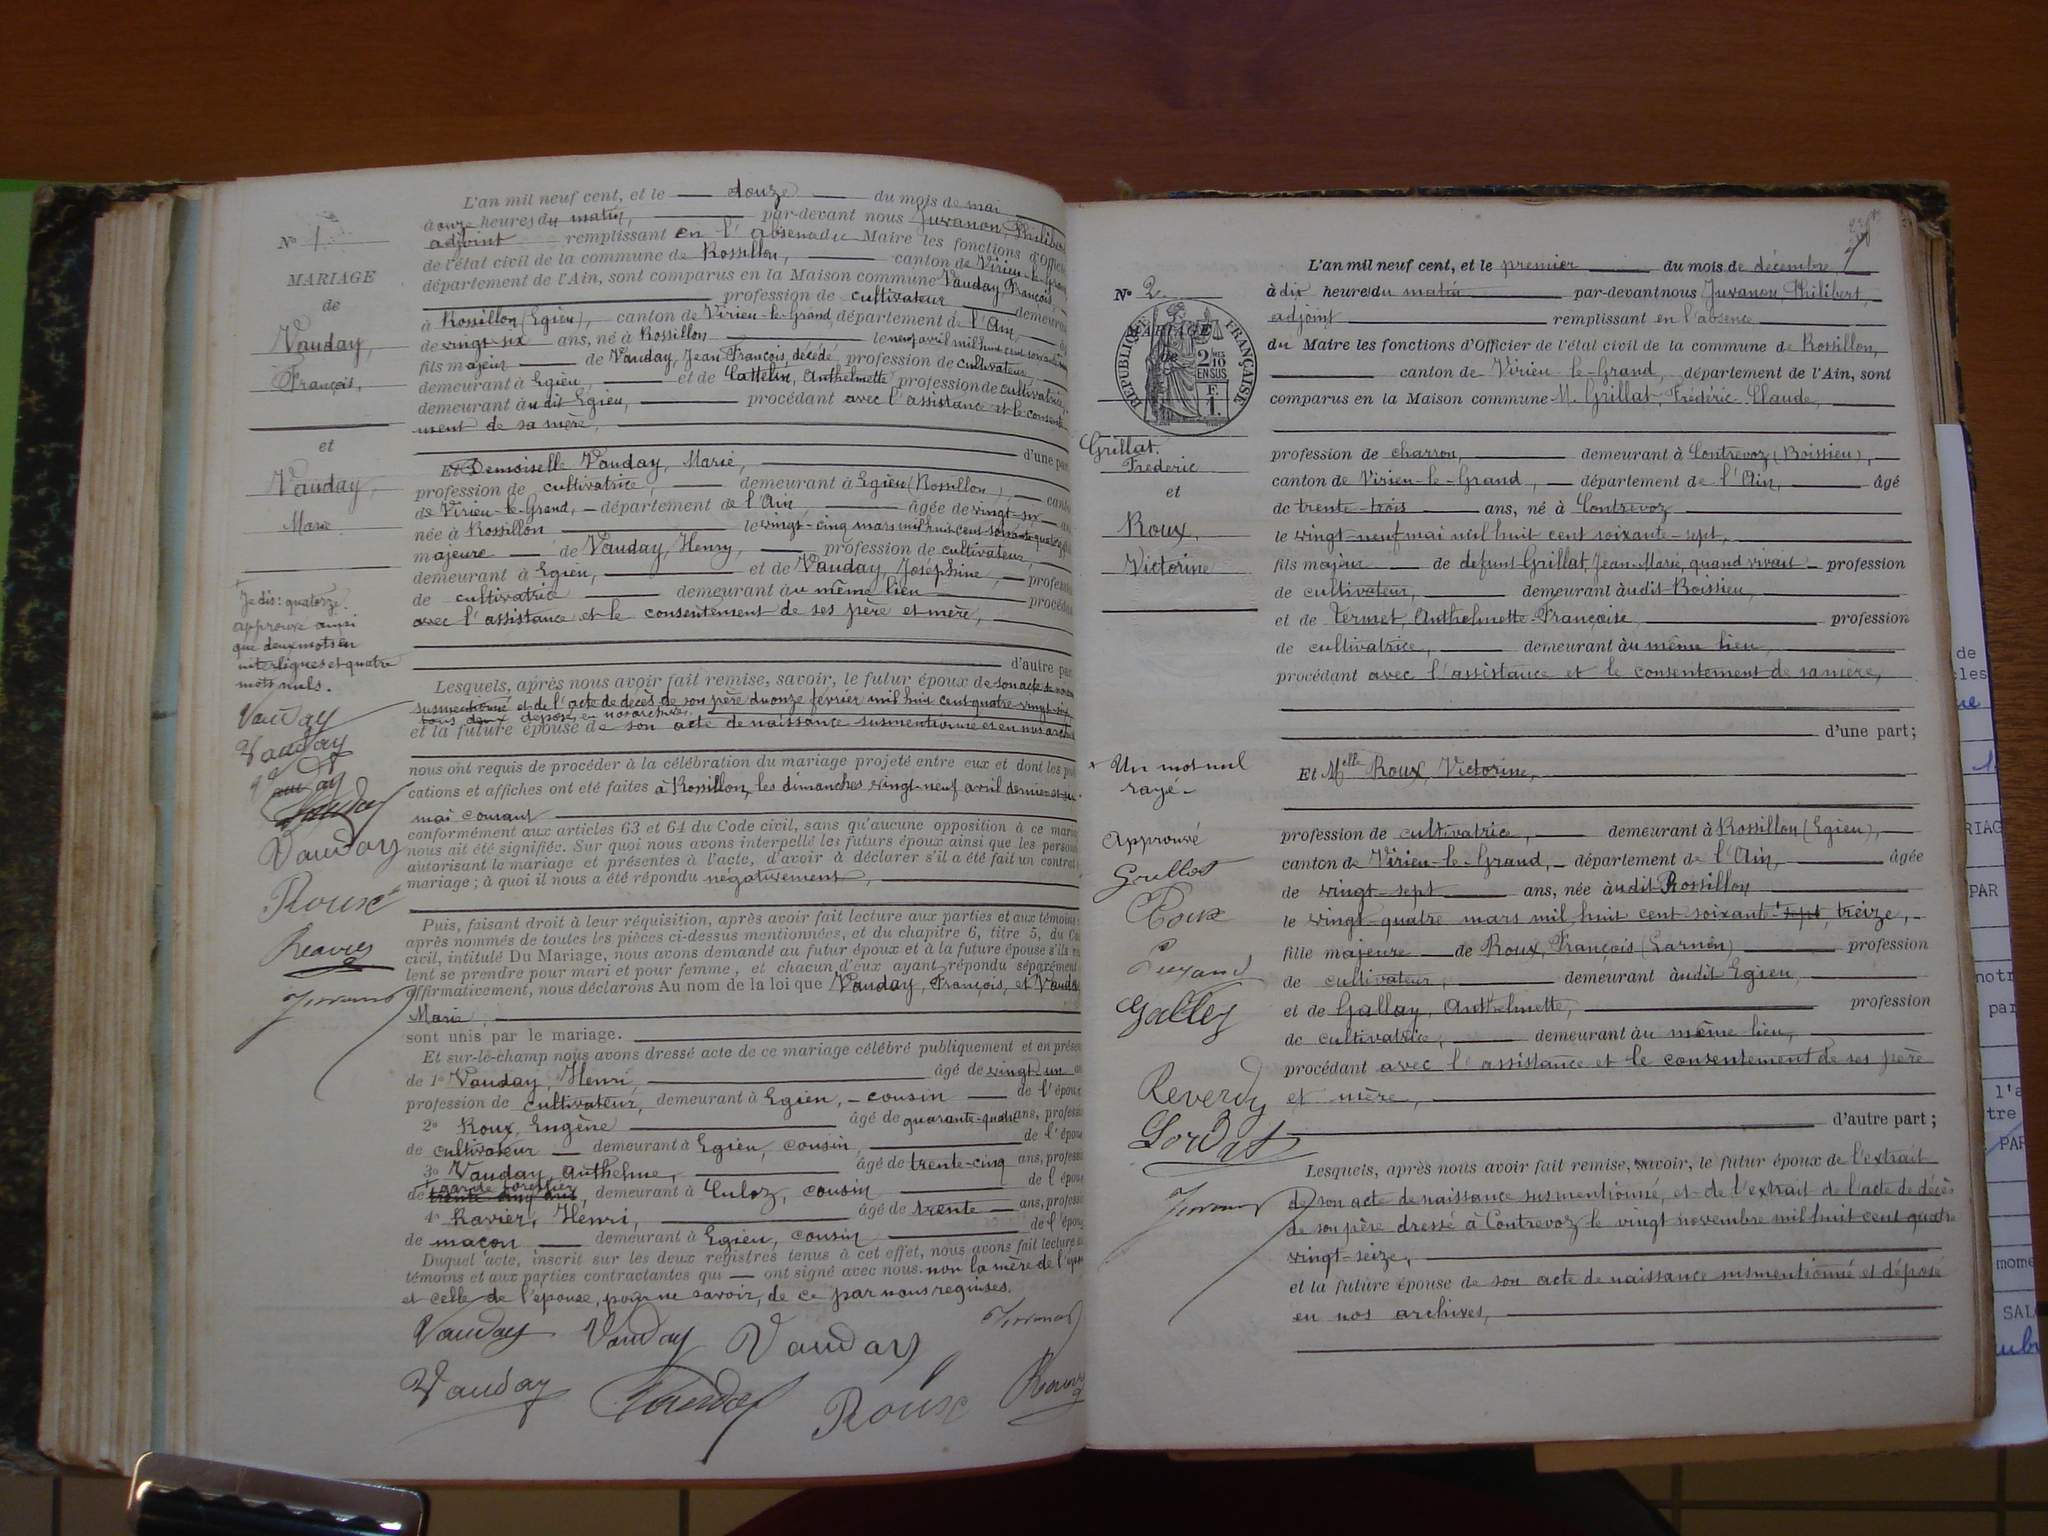 N° 1
MARIAGE
de
Vauday,
François,
et
Vauday,
Marie
Je dis: quatorze.
approuve ainsi
que deux mots en
interlignes et quatre
mots nuls.
Vauday
Vauday
Vauday
Vauday
Roux
Juvanon
L'an mil neuf cent, et le douze du mois de mai
à onze heures du matin, par-devant nous Juvanon, Philibert
adjoint remplissant en l'absence du Maire les fonctions d'Officier
de l'état civil de la commune de Rossillon, canton de Virieu-le-Grand
département de l'Ain, sont comparus en la Maison commune Vauday, François,
profession de cultivateur demeurant
à Rossillon (Egieu), canton de Virieu-le-Grand, département de l'Ain,
de vingt-six ans, né à Rossillon le neuf avril mil huit cent
fils majeur de Vauday, Jean François, décédé, profession de cultivateur
demeurant à Egieu, et de Cattelin, Anthelmette profession de cultivatrice,
demeurant àudit Egieu, procédant avec l'assistance et le consente
ment de sa mère,
d'une par
Et Demoiselle Vauday, Marie,
profession de cultivatrice, demeurant à Egieu (Rossillon), canto
de Virieu-le-Grand, département de l'Ain, âgée de vingt-six an
née à Rossillon le vingt-cinq mars mil huit cent soixante quatorze
majeure de Vauday, Henry, profession de cultivateur,
demeurant à Egieu, et de Vauday, Joséphine, profession
de cultivatrice demeurant àu même lieu procédant
avec l'assistance et le consentement de ses père et mère,
d'autre par
Lesquels, après nous avoir fait remise, savoir, le futur époux de son acte de
susmentionné et de l'acte de décès de son père du onze février mil huit cent quatre-vingt-six
tous deux déposé, en nos archives.
et la future épouse de son acte de naissance susmentionné et en nos arch
nous ont requis de procéder à la célébration du mariage projeté entre eux et dont les pu
cations et affiches ont été faites à Rossillon, les dimanches vingt-neuf avril dernier et
mai courant
conformément aux articles 63 et 64 du Code civil, sans qu'aucune opposition à ce maria
nous ait été signifiée. Sur quoi nous avons interpellé les futurs époux ainsi que les person
autorisant le mariage et présentes à l'acte, d'avoir à déclarer s'il a été fait un contrat
mariage; à quoi il nous a été répondu négativement,
Puis, faisant droit à leur réquisition, après avoir fait lecture aux parties et aux témoins
après nommés de toutes les pièces ci-dessus mentionnées, et du chapitre 6, titre 5, du C
civil, intitulé Du Mariage, nous avons demandé au futur époux et à la future épouse s'ils
lent se prendre pour mari et pour femme, et chacun d'eux ayant répondu séparément
affirmativement, nous déclarons Au nom de la loi que Vauday, François, et Vauday
Marie,
sont unis par le mariage.
Et sur-le-champ nous avons dressé acte de ce mariage célébré publiquement et en présen
de 1° Vauday, Henri, âgé de vingt-un
profession de cultivateur, demeurant à Egieu, cousin de l'époux
2° Roux, Eugène âgé de quarante-quatre ans, profession
de cultivateur demeurant à Egieu, cousin, de l'époux
3° Vauday, Anthelme, âgé de trente-cinq ans, profession
garde forestier
de trente cinq ans, demeurant à Culoz, cousin de l'épous
4° Ravier, Henri, âgé de trente ans, profession
de maçon demeurant à Egieu, cousin de l'épous
Duquel acte, inscrit sur les deux registres tenus à cet effet, nous avons fait lecture au
témoins et aux parties contractantes qui ont signé avec nous non la mère de l'époux
et celle de l'épouse, pour ne savoir, de ce par nous requises.
Vauday Vauday Vauday Juvanon
Vauday Vauday Roux Ravier
N° 2
MARIAGE
de
RÉPUBLIQUE FRANÇAISE
2 MES 10
EN SUS
F.
1.
Grillat.
Frédéric
et
Roux,
Victorine
Un mot nul
rayé.
Approuvé
Grillat
Roux
Gallay
Reverdy
Juvanon
L'an mil neuf cent, et le premier du mois de décembre
à dix heures du matin par-devant nous Juvanon, Philibert,
adjoint remplissant en l'absence
du Maire les fonctions d'Officier de l'état civil de la commune de Rossillon,
canton de Virieu-le-Grand, département de l'Ain, sont
comparus en la Maison commune M. Grillat, Frédéric-Claude,
profession de charron, demeurant à Contrevoz (Boissieu),
canton de Virieu-le-Grand, département de l'Ain, âgé
de trente-trois ans, né à Contrevoz
le vingt-neuf mai mil huit cent soixante-sept,
fils majeur de defunt Grillat, Jean-Marie, quand vivait profession
de cultivateur, demeurant àudit Boissieu,
et de Termet, Anthelmette-Françoise, profession
de cultivatrice, demeurant àu même lieu,
procédant avec l'assistance et le consentement de sa mère,
d'une part;
Et Melle Roux, Victorine,
profession de cultivatrice, demeurant à Rossillon (Egieu),
canton de Virieu-le-Grand, département de l'Ain, âgée
de vingt-sept ans, née àudit Rossillon
le vingt-quatre mars mil huit cent soixante-sept, treize,
fille majeure de Roux, François (Carnin) profession
de cultivateur, demeurant àudit Egieu,
et de Gallay, Anthelmette, profession
de cultivatrice, demeurant àu même lieu,
procédant avec l'assistance et le consentement de ses père
et mère,
d'autre part;
Lesquels, après nous avoir fait remise, savoir, le futur époux de l'extrait
de son acte de naissance susmentionné, et de l'extrait de l'acte de décès
de son père dressé à Contrevoz le vingt novembre mil huit cent quatre
vingt-seize,
et la future épouse de son acte de naissance susmentionné et déposé
en nos archives,